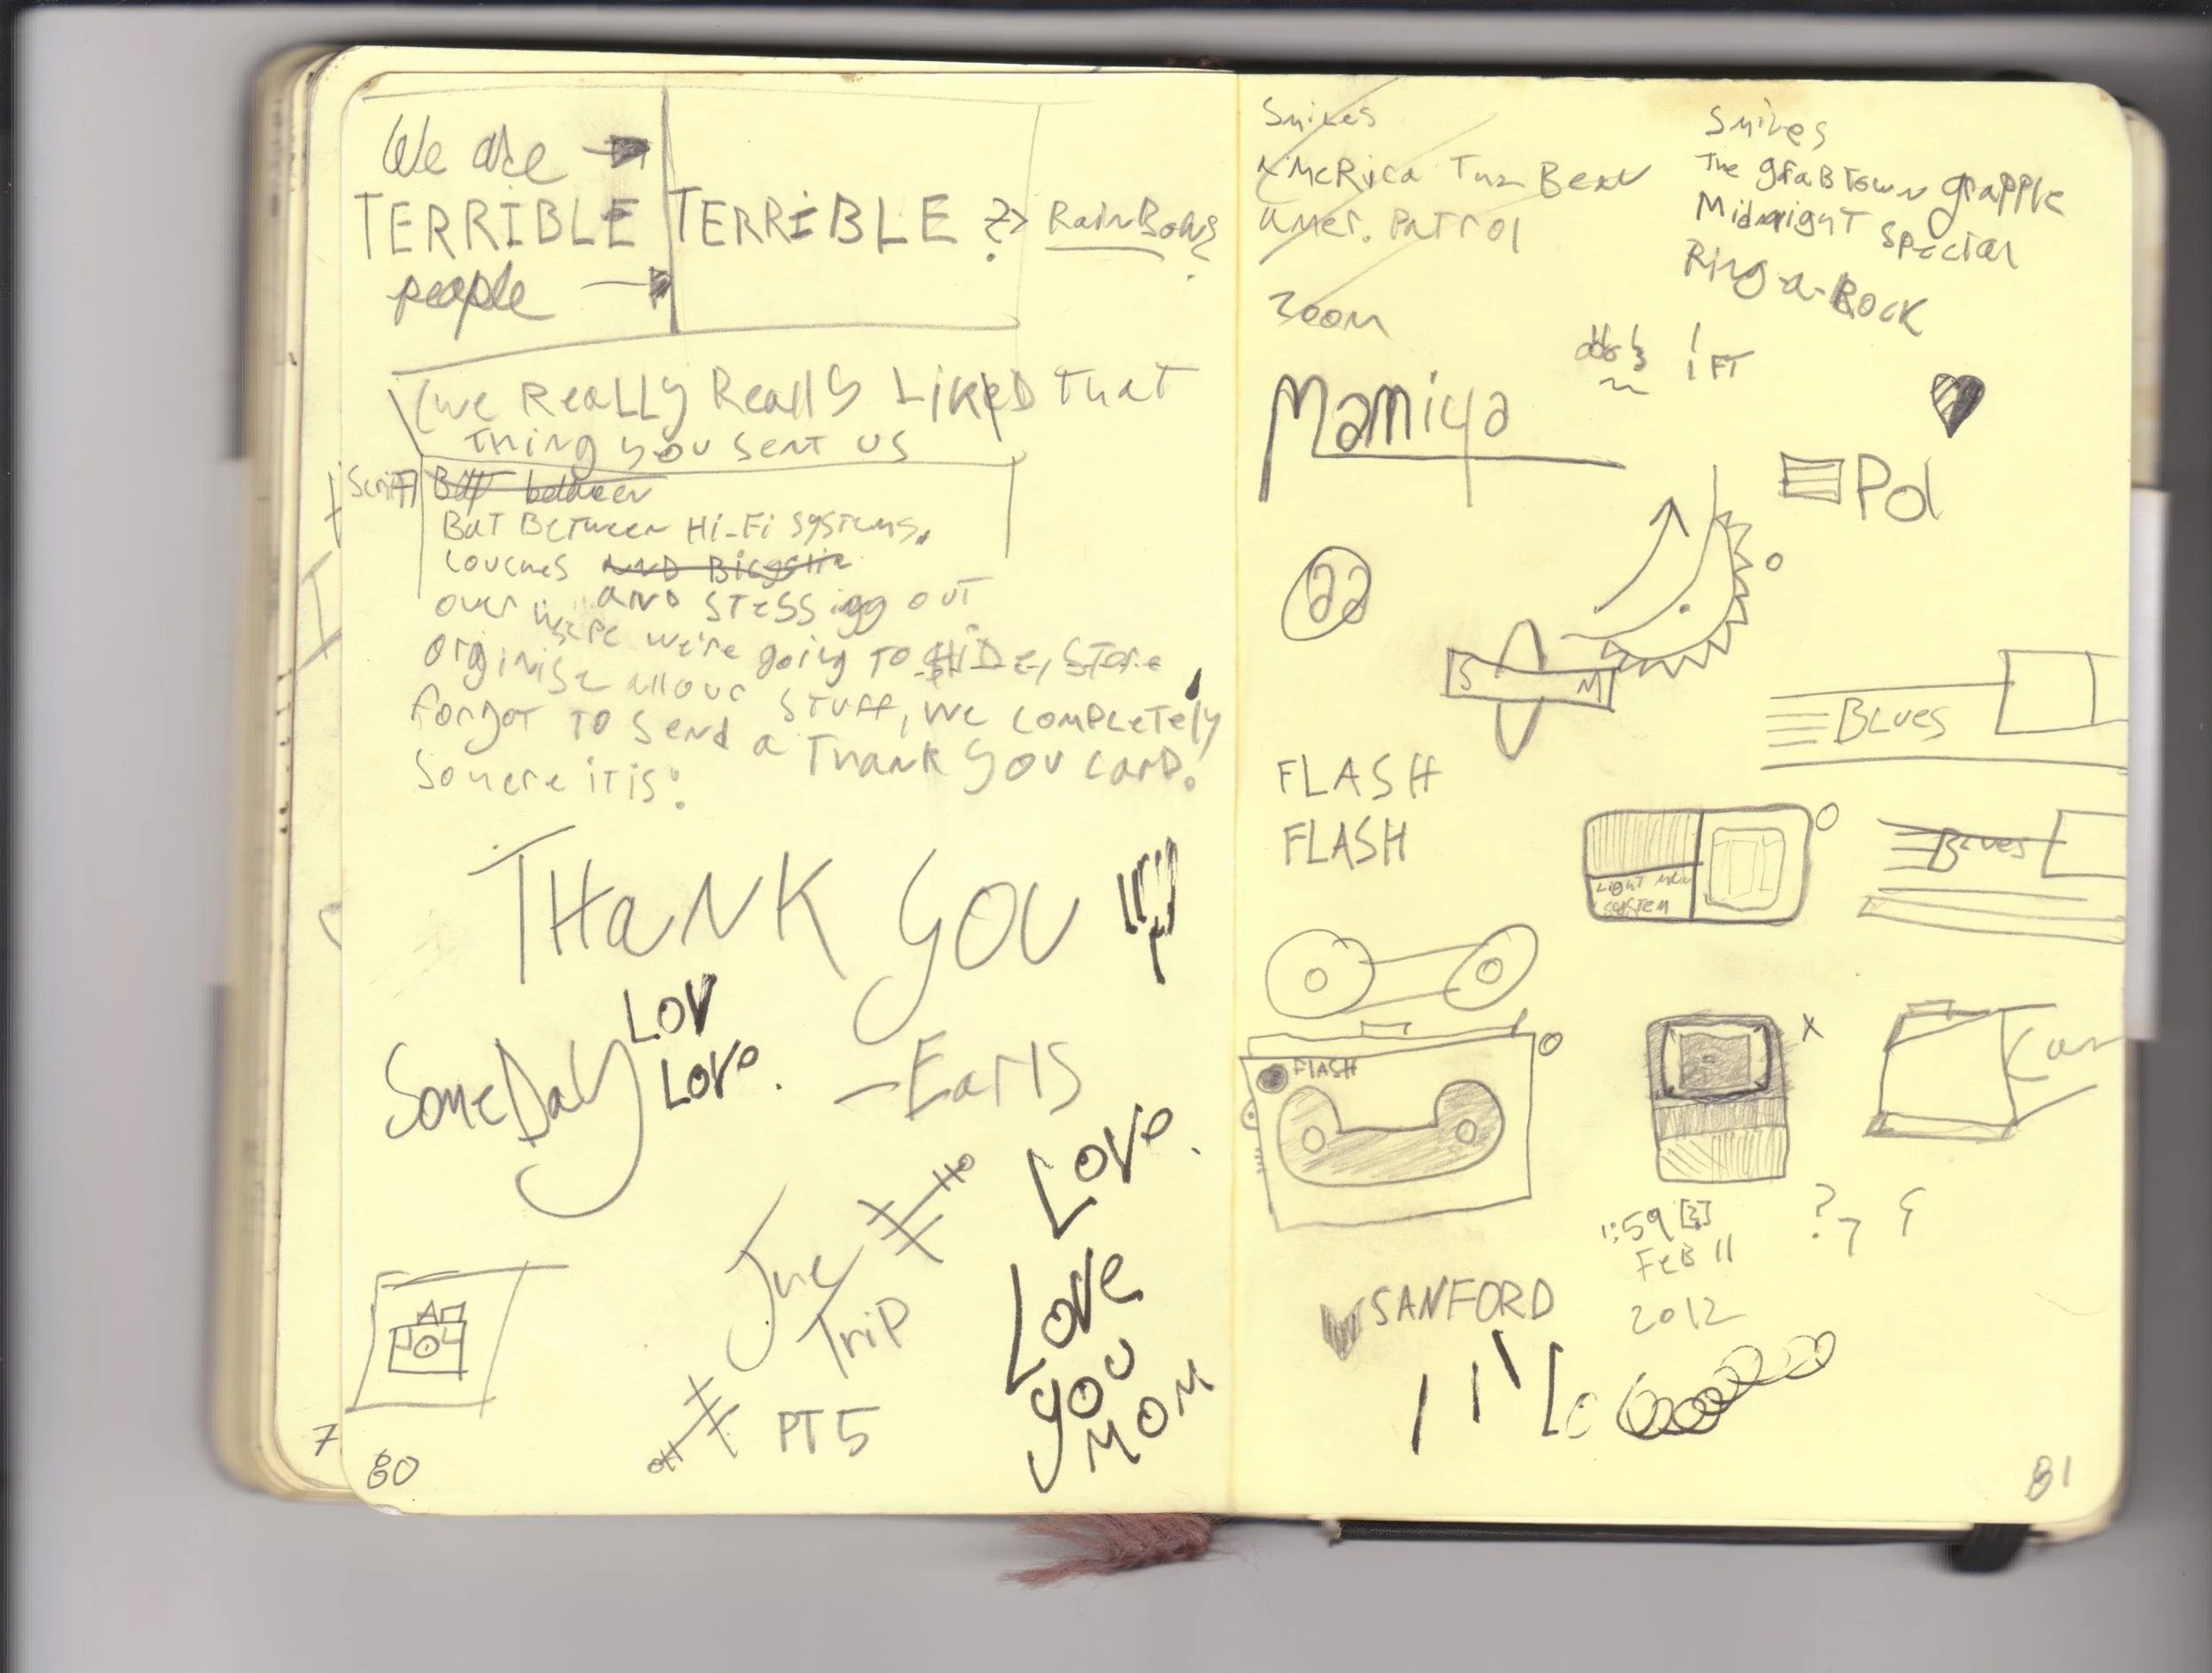 We are
TERRIBLE TERRIBLE ?> RainBows?
people
(we ReaLLy ReaLLy LikeD that
thing you sent us
Script
But between
But Between Hi-Fi systems,
couches AND Bicycle
and stessing out
over where we're going to HiDe, Store
orginise all our stuff, we completely
forgot to send a Thank you card.
So here it is:
THaNK YOU !!!
LOV
SomeDay
LOVe.
- Earls
LOVe.
June
Trip
PT 5
LOVe
YOU
MOM
7
80
Snipes
America The Beau
Amer. Patrol
Zoom
Snipes
The grabTown grapple
Midnight Special
Ring-a-Rock
1 FT
Mamiya
Pol
S M
BLues
FLASH
FLASH
Light
SYSTEM
BLues
FLASH
:59
FeB 11
2012
SANFORD
81